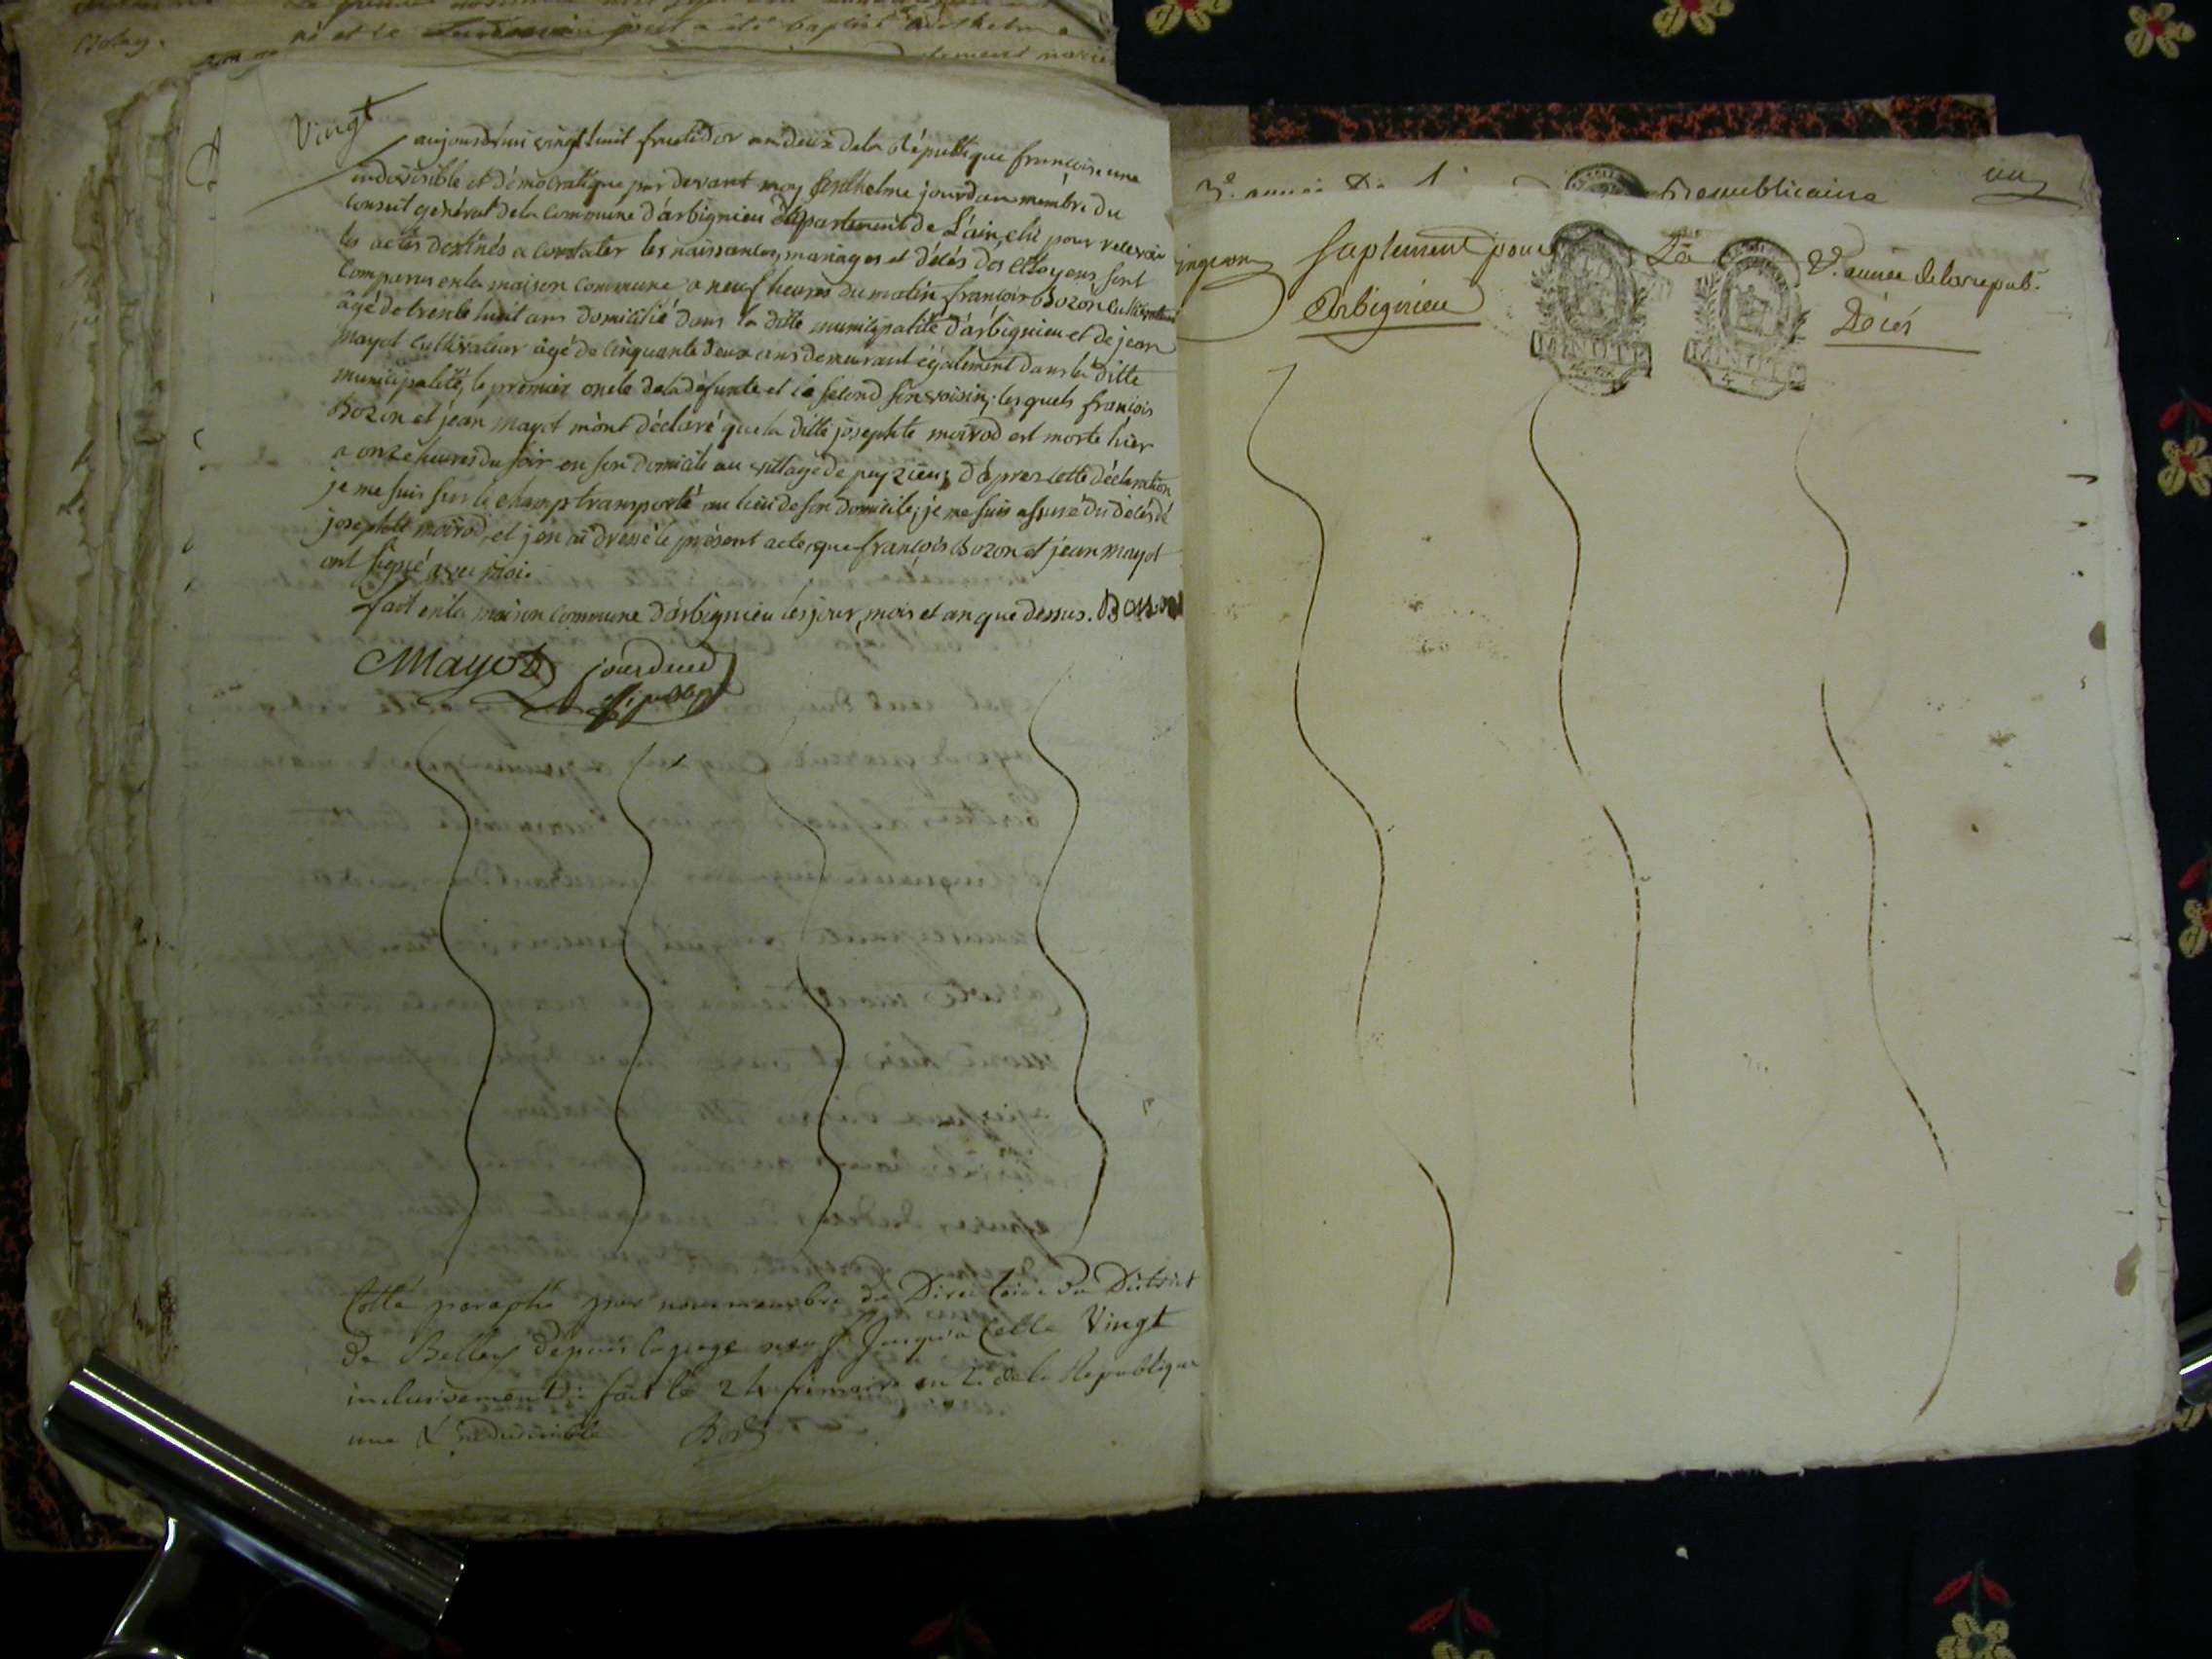 né et le a été baptisé anthelme
Vingt
aujourdhui vingt huit fructidor an deux de la république françoise une
indivisible et démocratique par devant moy Anthelme jourdan membre du
conseil général de la commune d'arbignieu département de L'ain, elu pour recevoir
les actes destinés a constater les naissances, mariages et décés des citoyens sont
comparus en la maison commune a neuf heures du matin françois Bozon cultivateur
âgé de trente huit ans domicilié dans la ditte municipalité d'arbignieu et de jean
Mayot cultivateur âgé de cinquante deux ans demeurant également dans la ditte
municipalité, le premier oncle de la défunte et le second son voisin; les quels françois
Bozon et jean Mayot m'ont déclaré que la ditte josephte moirod est morte hier
a onze heures du soir en son domicile au village de peyzieu, d'apres cette déclaration
je me suis sur le champ transporté au lieu de son domicile; je me suis assuré du décés de
josephte moirod, et j'en ai dressé le présent acte, que françois Bozon et jean Mayot
ont signé avec moi.
fait en la maison commune d'arbignieu les jour, mois et an que dessus. Bozon
Mayot jourdan
off. public
Cotté paraphé par nous membre du Directoire du District
de Belley depuis la page neuf jusqu'a celle Vingt
inclusivement: fait le 24 frimaire an 2e de la Republique
une & indivisible
3e année De Republicaine
un
Suplement pour La 2e. année de la repub.
Arbignieu Décés
MINUTE MINUTE